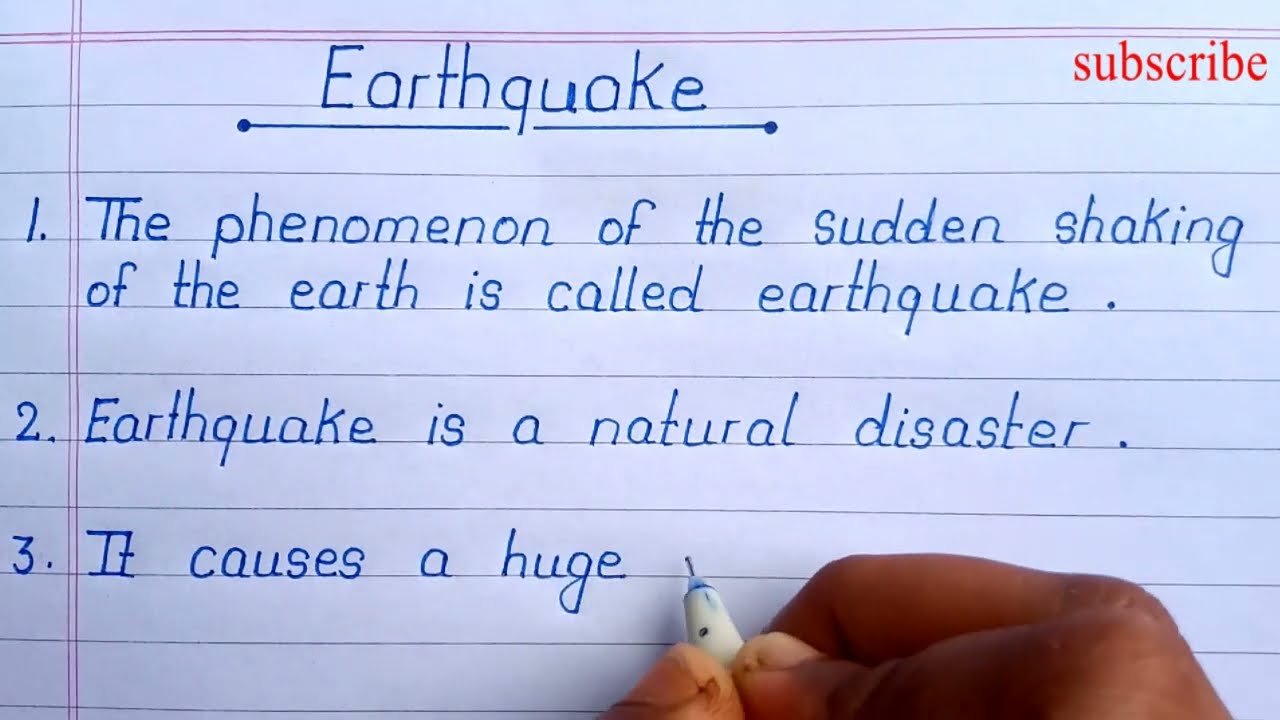 Earthquake
subscribe
1. The phenomenon of the sudden shaking
of the earth is called earthquake.
2. Earthquake is a natural disaster.
3. It causes a huge